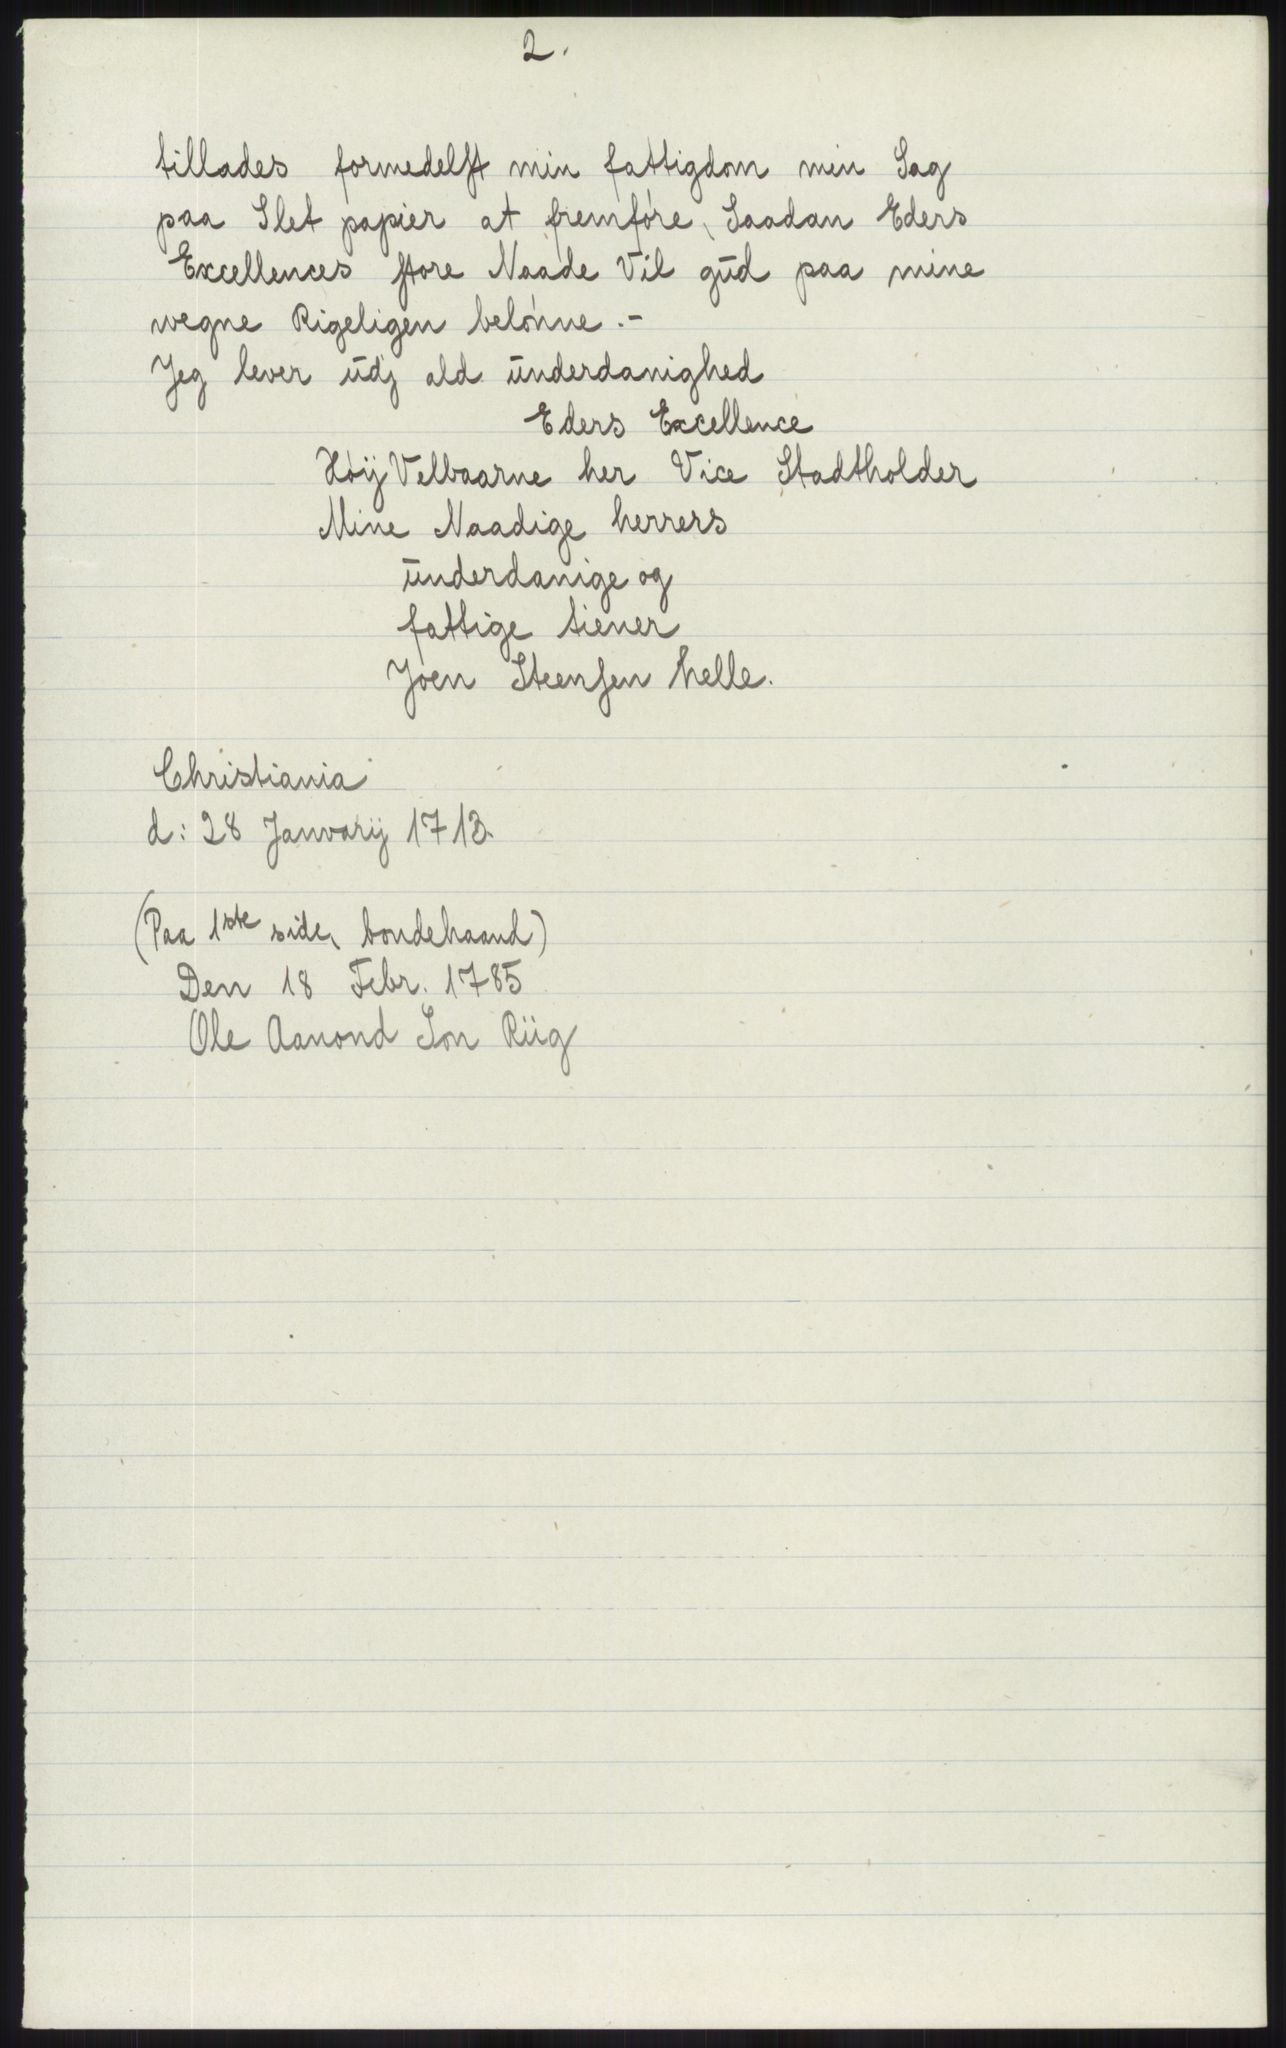 2.
tillades formedelſt min fattigdom min Sag
paa Slet papier at fremföre, Saadan Eders
Excellences ſtore Naade Vil gūd paa mine
wegne Rigeligen belönne.-
Jeg lever ūdj ald ūnderdanighed
Eders Excellence
Höÿ Velbaarne her Vice Stadtholder
Mine Naadige herrers
ūnderdanige og
fattige tiener
Joen Steenſen helle.
Christiania
d: 28 Januarÿ 1713.
(Paa 1ste side, bondehaand)
Den 18 Febr. 1785
Ole Aanond Son Riig